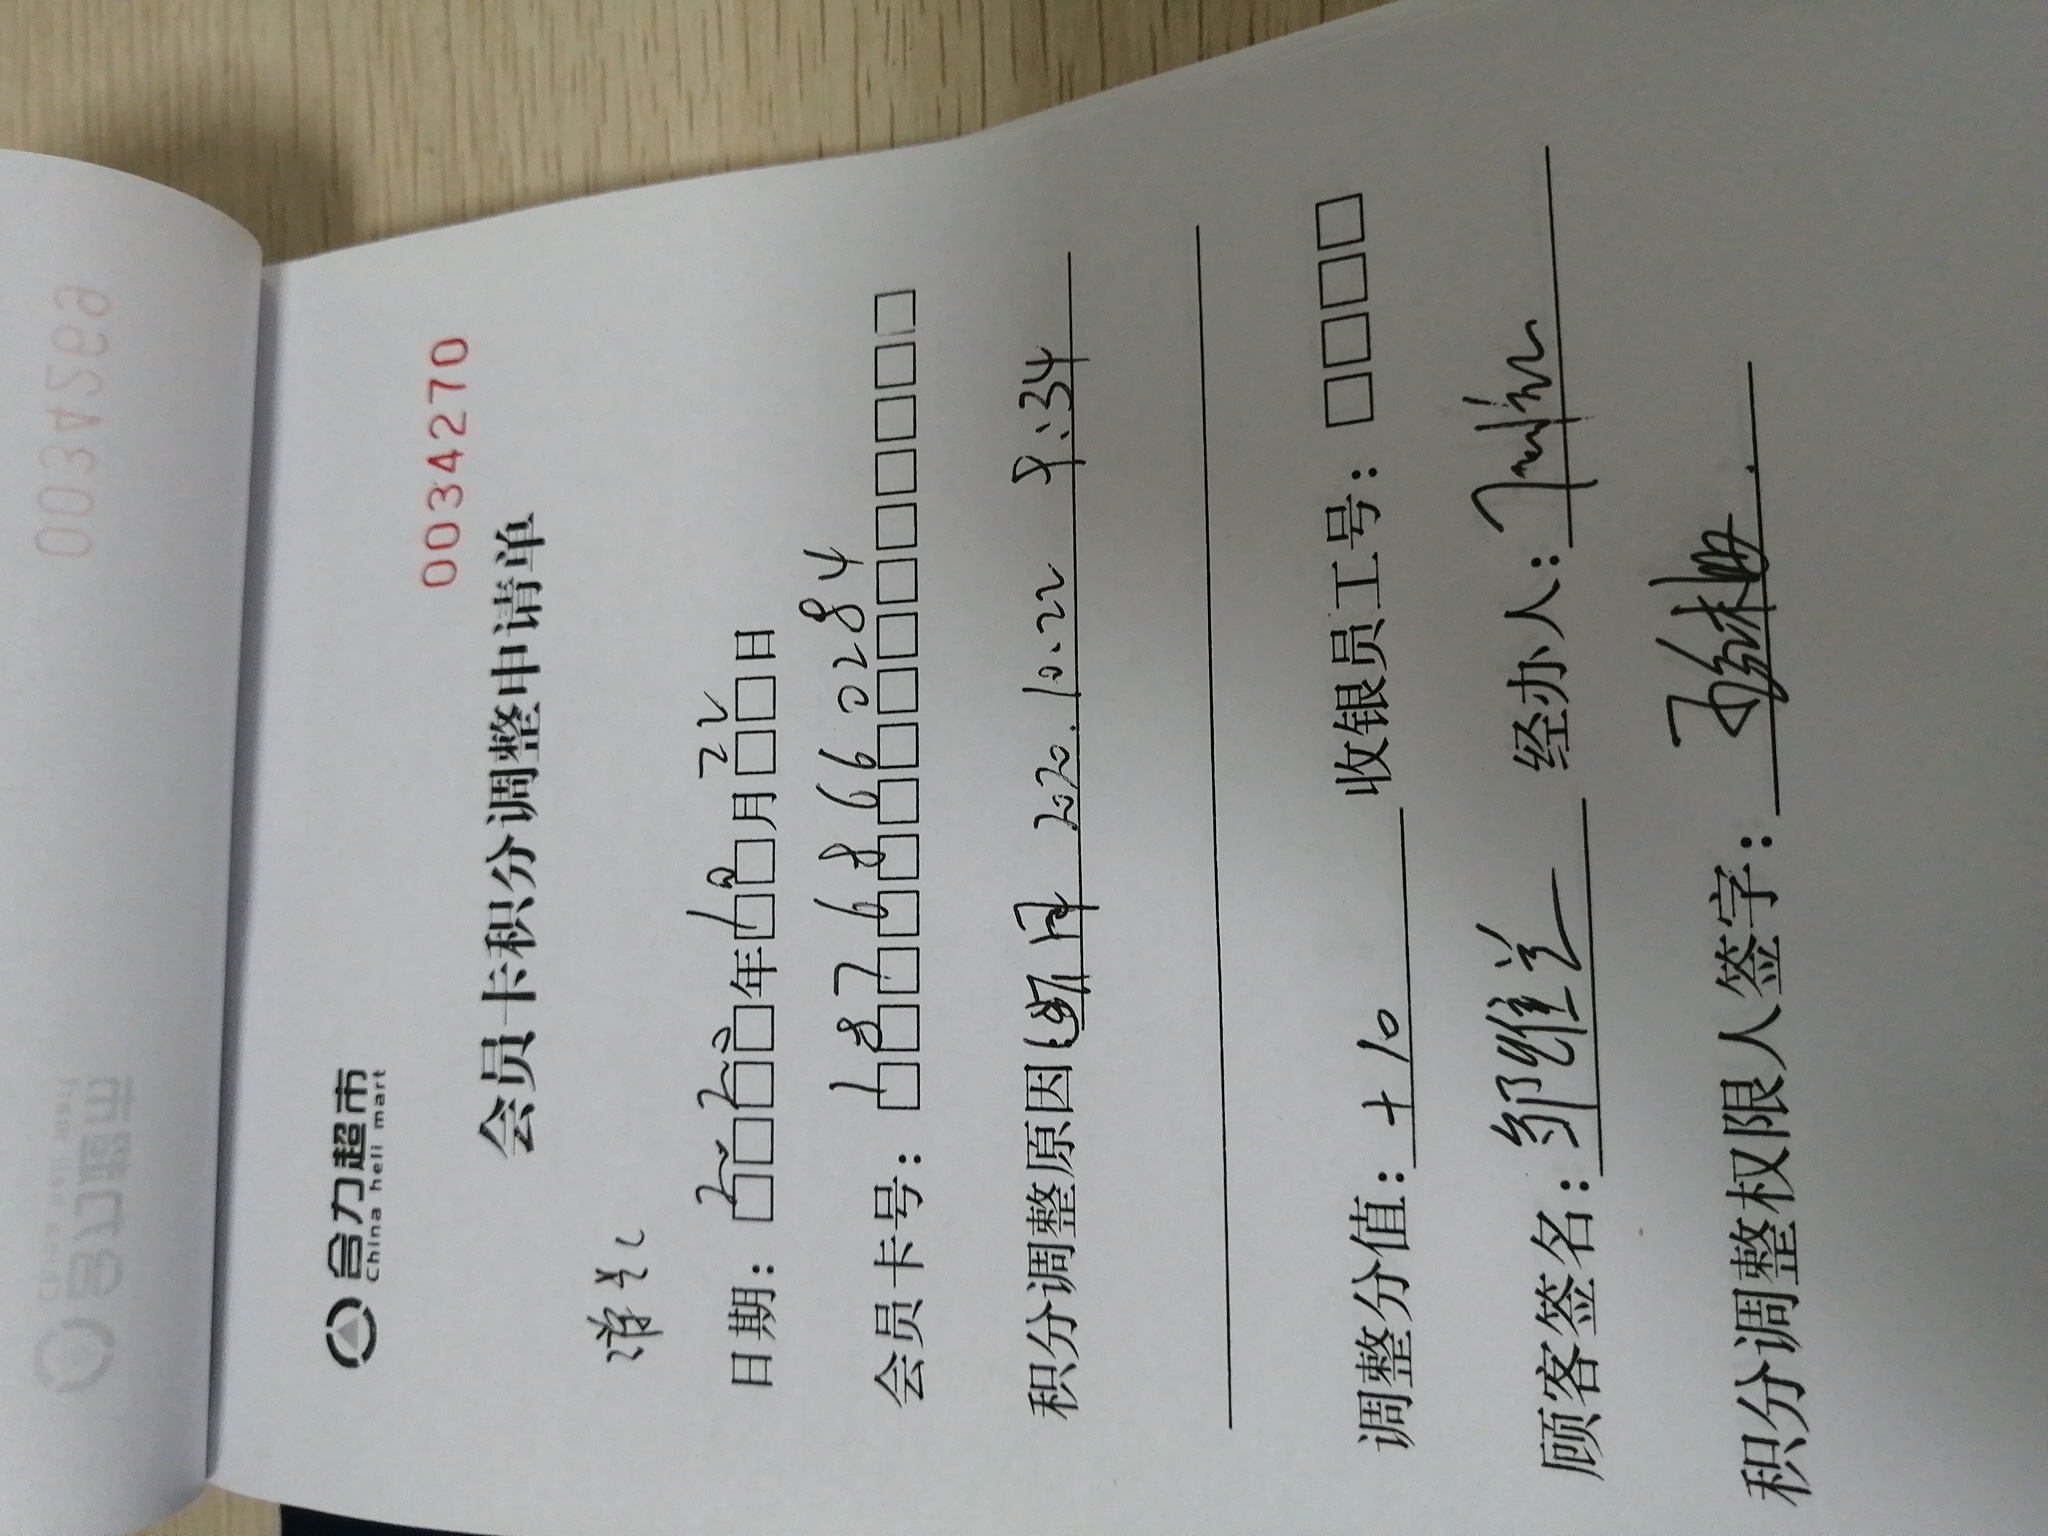 合力超市
China heli mart
0034270
会员卡积分调整申请单
日期：2020年10月22日
会员卡号：18768660284
积分调整原因：断网 2020.10.22 9:34
调整分值：+10 收银员工号：□□□□
顾客签名：邹雅兰 经办人：
积分调整权限人签字：